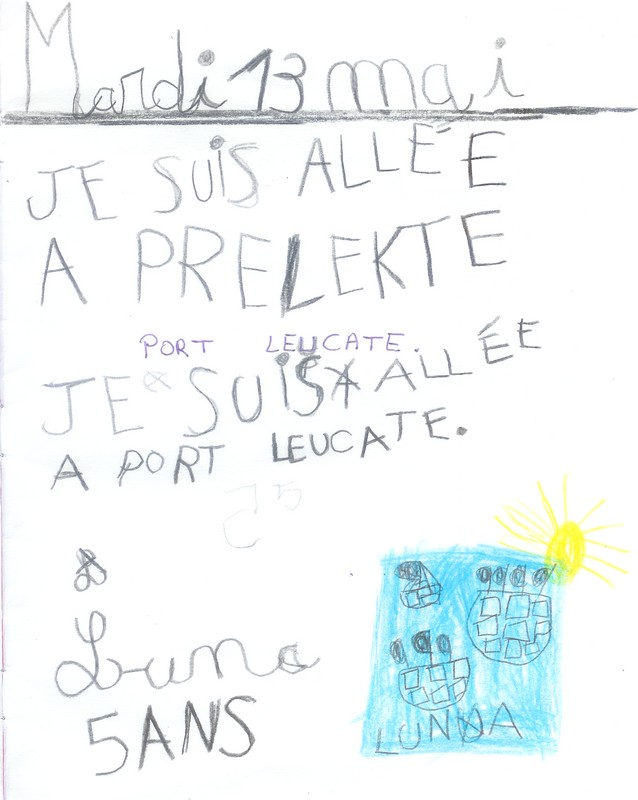 Mardi 13 mai
JE SUIS ALLÉE
A PRELEKTE
PORT LEUCATE.
JE SUIS ALLÉE
A PORT LEUCATE.
Luna
5 ANS
LUNA